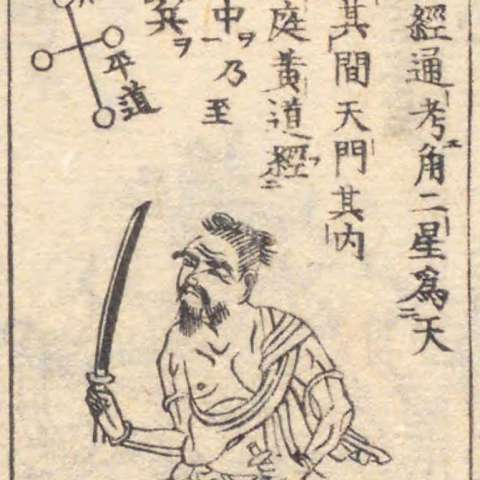 經通考角二星爲天
其間天門其内
庭黃道經
中ヲ一乃至
兵ヲ
平道